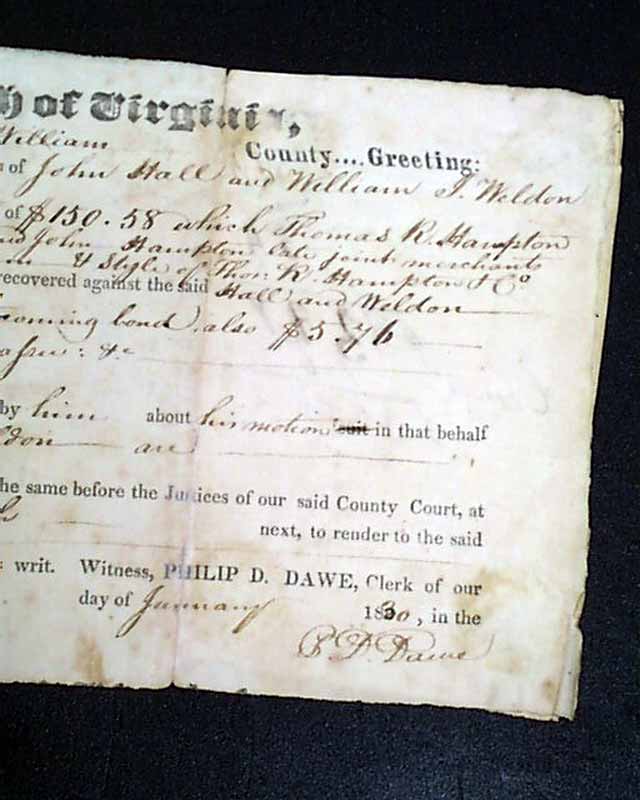 h of Virginia,
William
County.... Greeting:
of John Hall and William J. Weldon
of $150.58 which Thomas R. Hampton
and John Hampton late joint merchants
& Style of Thos: R. Hampton & Co
recovered against the said Hall and Weldon
coming bond) also $5.76
&c
by him about his motion suit in that behalf
ldon are
he same before the Justices of our said County Court, at
next, to render to the said
writ. Witness, PHILIP D. DAWE, Clerk of our
day of January 1830, in the
P. D. Dawe